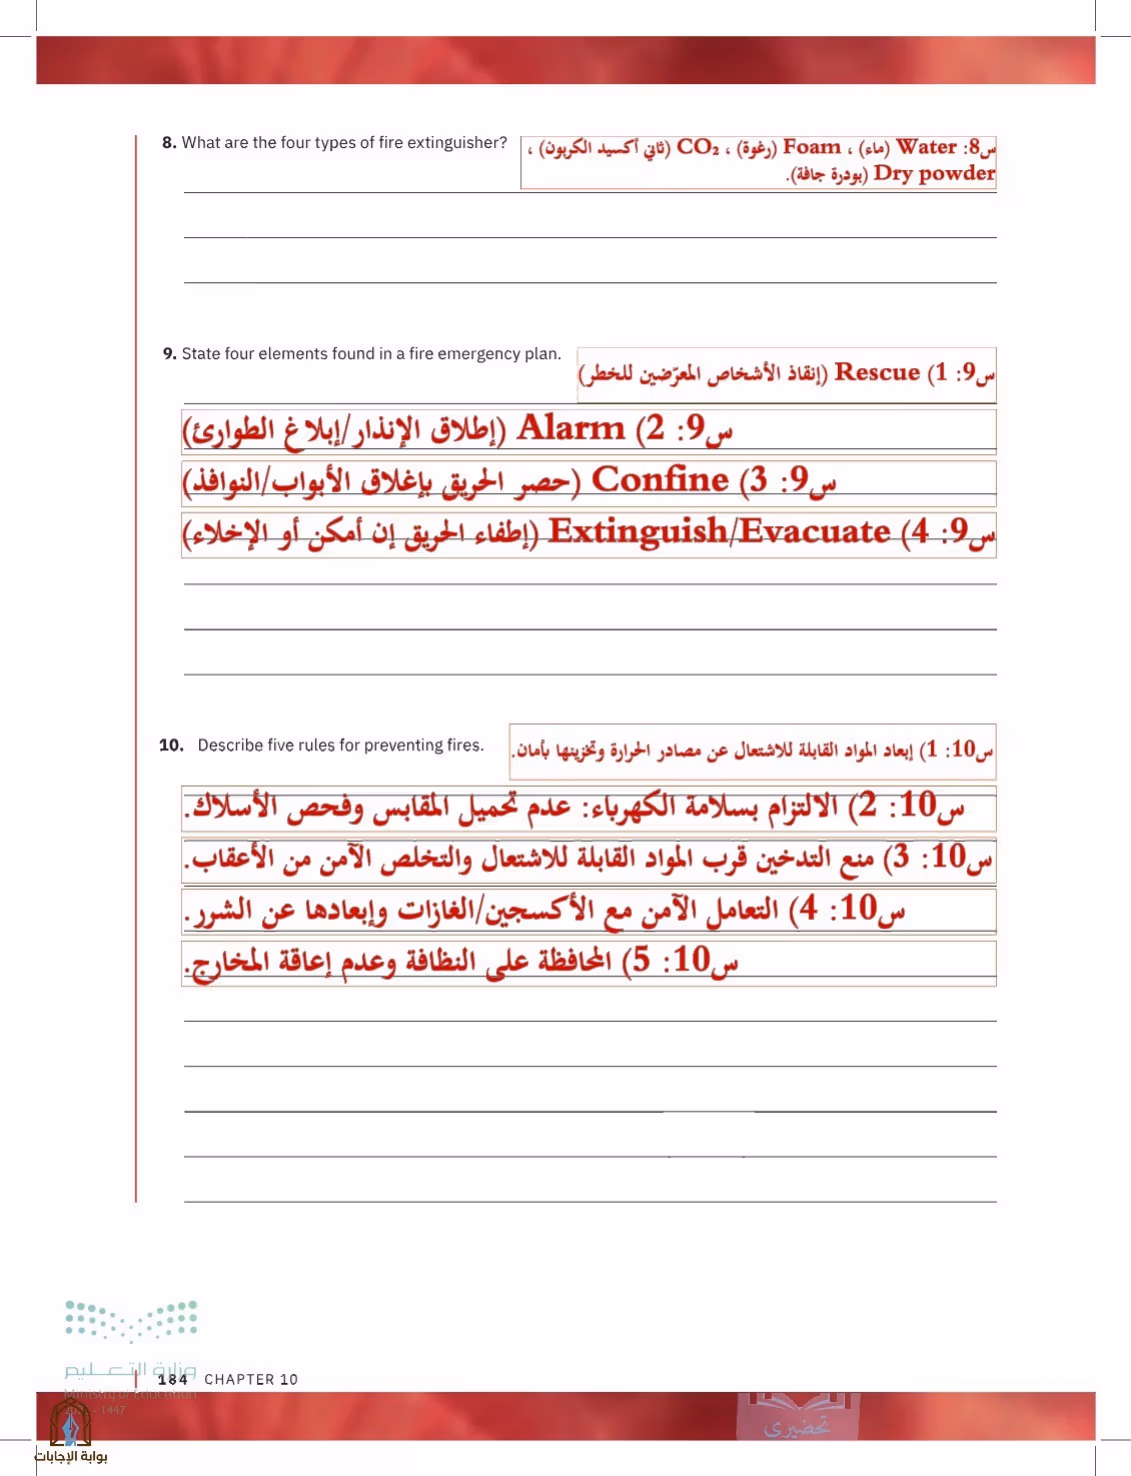 8. What are the four types of fire extinguisher?
س8: Water (ماء) ، Foam (رغوة) ، CO₂ (ثاني أكسيد الكربون) ،
Dry powder (بودرة جافة).
9. State four elements found in a fire emergency plan.
س9: 1) Rescue (إنقاذ الأشخاص المعرّضين للخطر)
س9: 2) Alarm (إطلاق الإنذار/إبلاغ الطوارئ)
س9: 3) Confine (حصر الحريق بإغلاق الأبواب/النوافذ)
س9: 4) Extinguish/Evacuate (إطفاء الحريق إن أمكن أو الإخلاء)
10. Describe five rules for preventing fires.
س10: 1) إبعاد المواد القابلة للاشتعال عن مصادر الحرارة وتخزينها بأمان.
س10: 2) الالتزام بسلامة الكهرباء: عدم تحميل المقابس وفحص الأسلاك.
س10: 3) منع التدخين قرب المواد القابلة للاشتعال والتخلص الآمن من الأعقاب.
س10: 4) التعامل الآمن مع الأكسجين/الغازات وإبعادها عن الشرر.
س10: 5) المحافظة على النظافة وعدم إعاقة المخارج.
وزارة التعليم
184 CHAPTER 10
Ministry of Education
- 1447
تحضيري
بوابة الإجابات